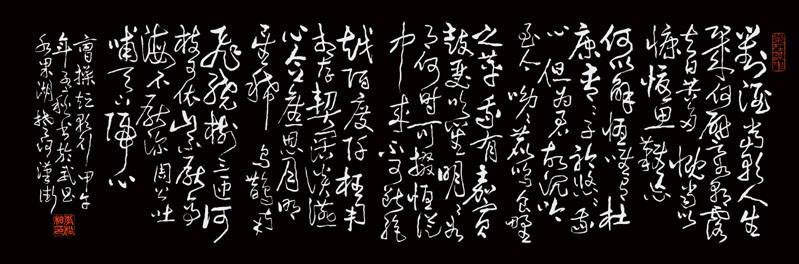 對酒當歌人生
幾何譬如朝露
去日苦多慨當以
慷憂思難忘
何以解憂唯有杜
康青青子衿悠悠我
心但為君故沉吟
至今呦呦鹿鳴食野
之苹我有嘉賓
鼓瑟吹笙明明如
月何時可掇憂從
中來不可斷絕
越陌度阡枉用
相存契闊談讌
心念舊恩月明
星稀烏鵲南
飛繞樹三匝何
枝可依山不厭高
海不厭深周公吐
哺天下歸心
曹操短歌行甲午
年秋書於武昌
水果湖漢街